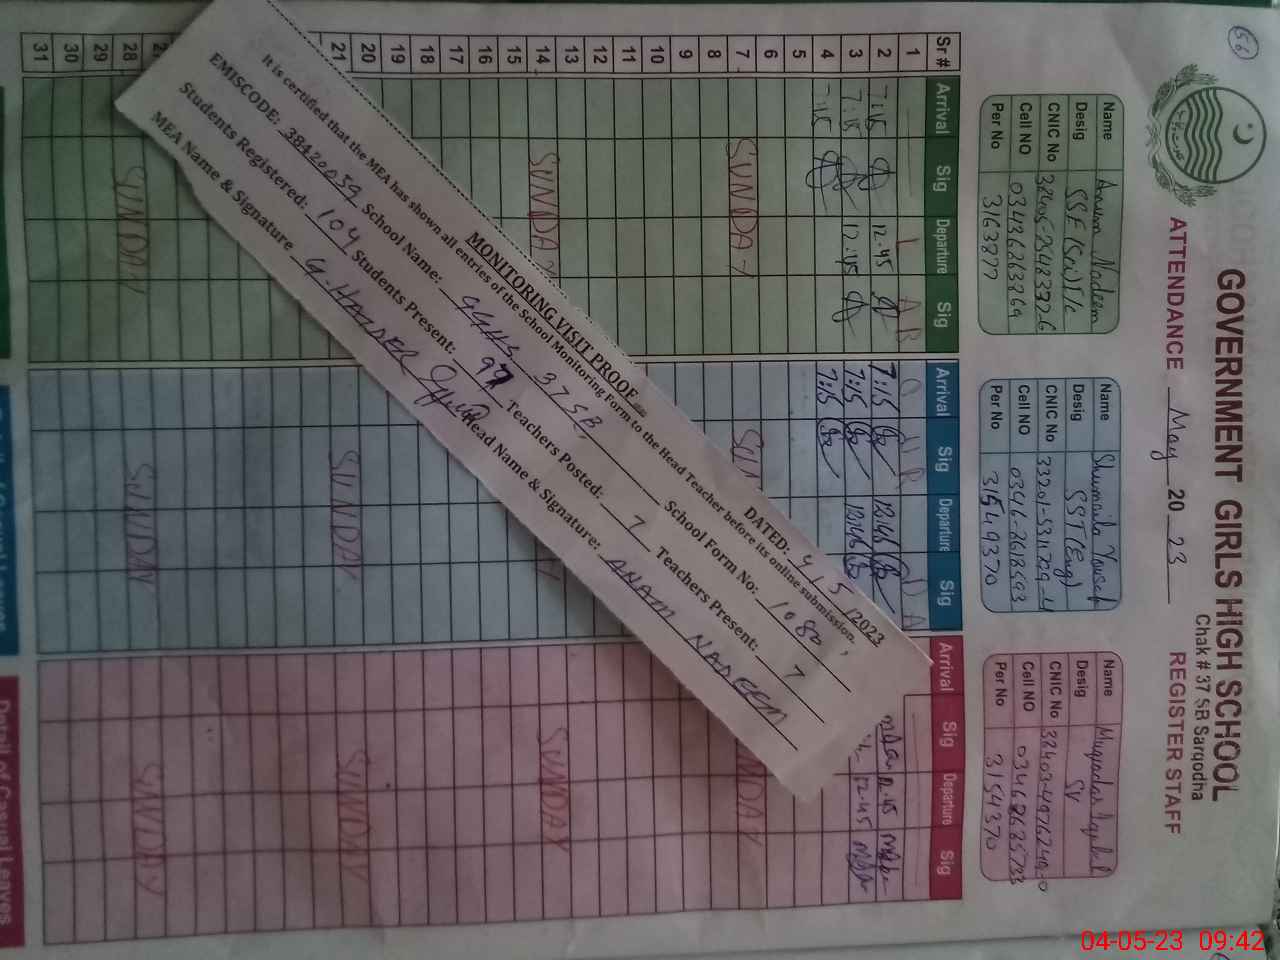 56
GOVERNMENT GIRLS HIGH SCHOOL
Chak # 37 SB Sargodha
ATTENDANCE May 20 23 REGISTER STAFF
Name Anam Nadeem
Desig
CNIC No
Cell NO
Per No 3163877
Name Shumaila Yousaf
Desig SST (Eng)
CNIC No
Cell NO 0346-2618593
Per No
Name
Desig
CNIC No
Cell NO
Per No 3154370
Sr # Arrival Sig Departure Sig Arrival Sig Departure Sig Arrival Sig Departure Sig
1
2 7:15 12:45 7:15 12:45 12:45
3 7:15 12:45 7:15 12:45 12:45
4 7:15 7:15
5
6
7 SUNDAY
8
9
10
11
12
13
14 SUNDAY SUNDAY
15
16
17
18
19
20
21 SUNDAY SUNDAY
28 SUNDAY SUNDAY SUNDAY
29
30
31
MONITORING VISIT PROOF
DATED: 4/5/2023
It is certified that the MEA has shown all entries of the School Monitoring Form to the Head Teacher before its online submission.
EMISCODE: 38420059 School Name: GGHS 37 SB, School Form No: 1080
Students Registered: 104 Students Present: 97 Teachers Posted: 7 Teachers Present: 7
MEA Name & Signature G. HAIDER Head Name & Signature: ANAM NADEEM
Detail of Casual Leaves
04-05-23 09:42